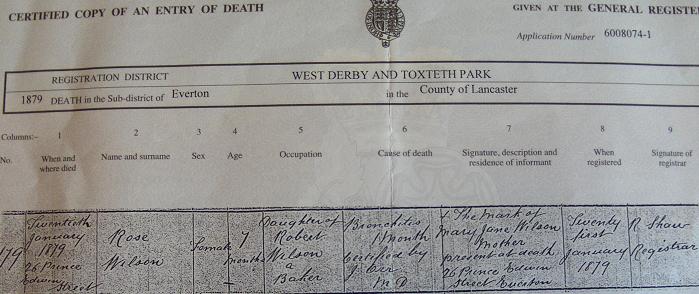 CERTIFIED COPY OF AN ENTRY OF DEATH
GIVEN AT THE GENERAL REGISTE
Application Number 6008074-1
REGISTRATION DISTRICT WEST DERBY AND TOXTETH PARK
1879 DEATH in the Sub-district of Everton in the County of Lancaster
Columns:- 1 2 3 4 5 6 7 8 9
No. When and where died Name and surname Sex Age Occupation Cause of death Signature, description and residence of informant When registered Signature of registrar
179
Twentieth
January
1879
26 Prince
Edwin
Street
Rose
Wilson
Female
7
months
Daughter of
Robert
Wilson
a
Baker
Bronchitis
1 Month
Certified by
M D
The mark of
Mary Jane Wilson
Mother
present at death
26 Prince Edwin
Street Everton
Twenty
first
January
1879
R Shaw
Registrar